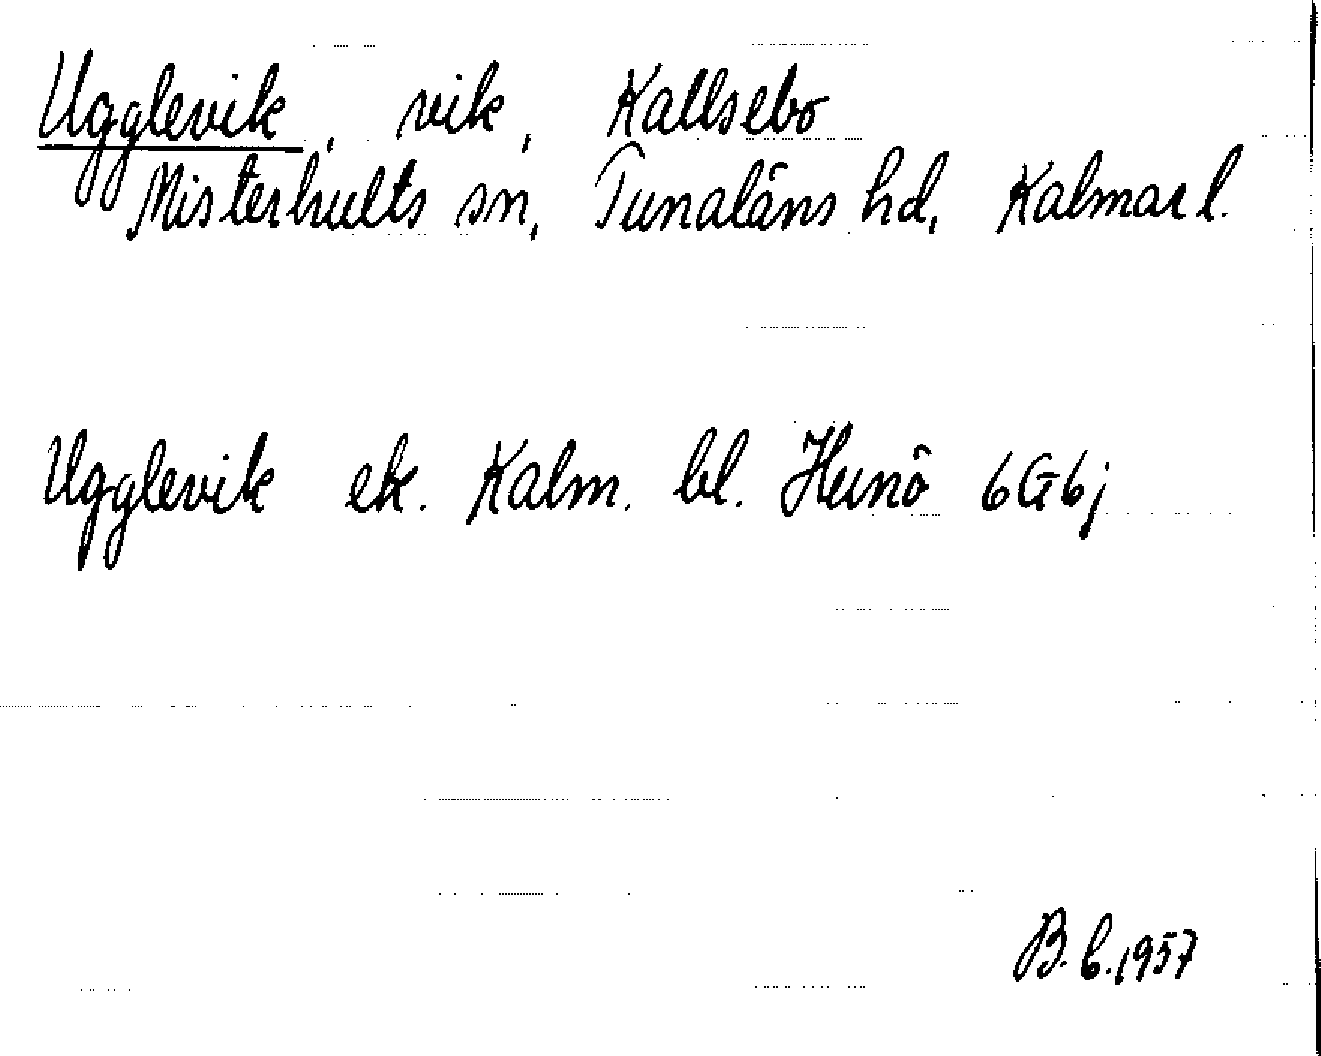 Ugglevik, vik, Kallsebo
Misterhults sn, Tunaläns hd, Kalmar l.
Ugglevik ek. Kalm. bl. Hunö 6G6j
B.b.1957